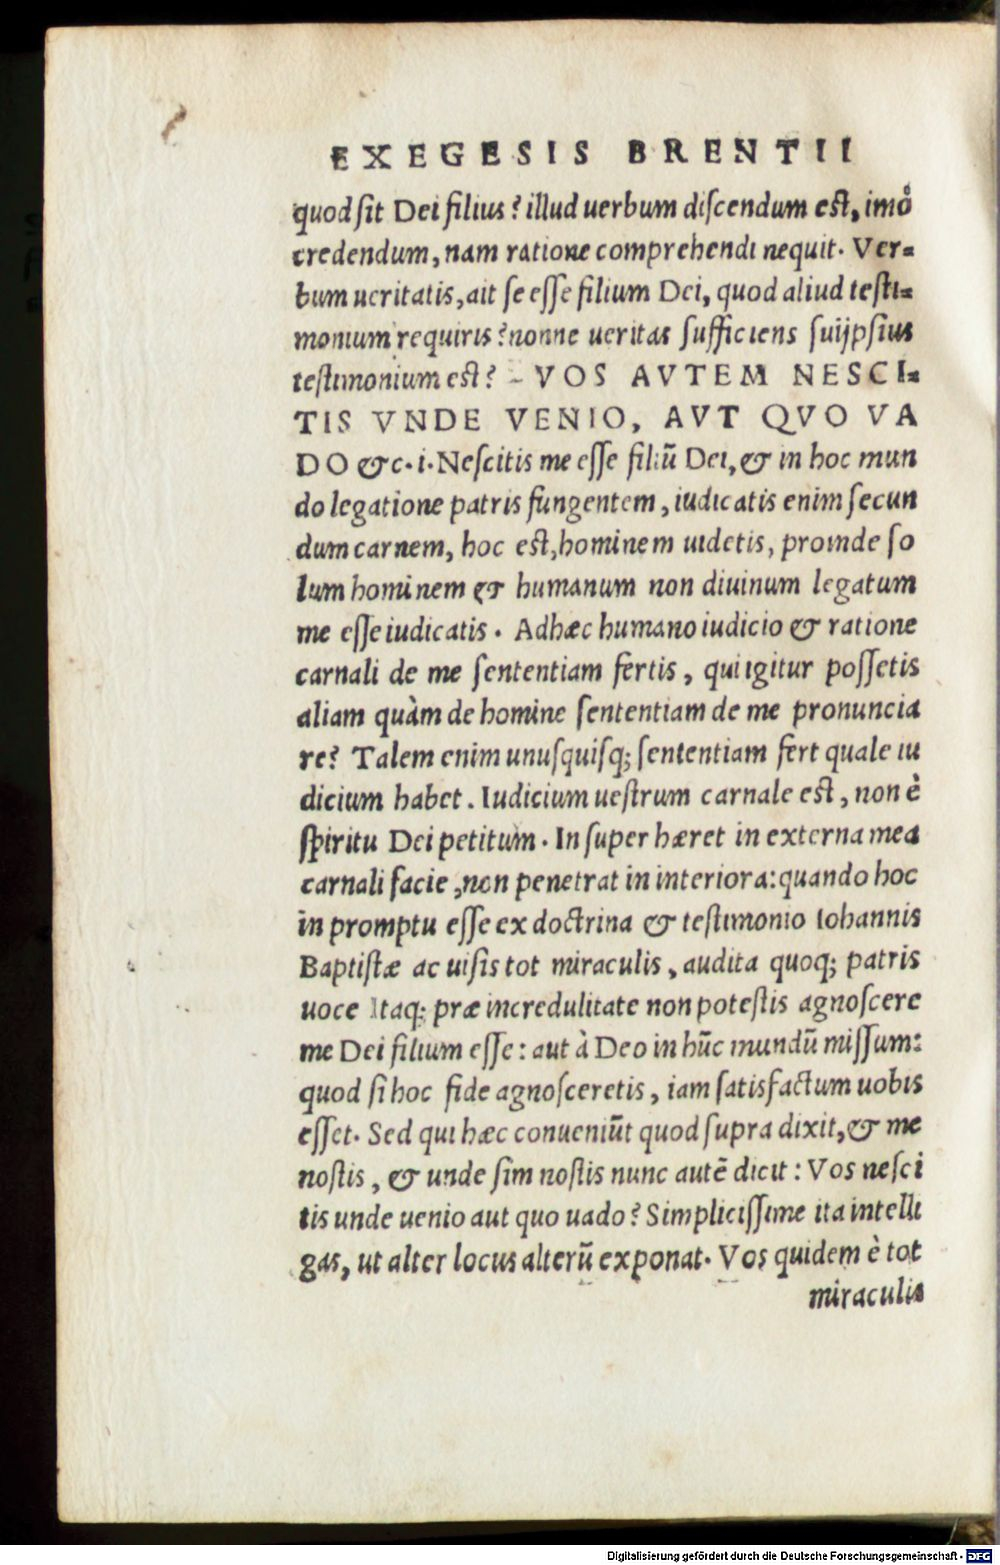 EXEGESIS BRENTII
quod ſit Dei filius? illud uerbum diſcendum eſt, imò
credendum, nam ratione comprehendi nequit. Ver-
bum ueritatis, ait ſe eſſe filium Dei, quod aliud teſti-
monium requiris? nonne ueritas ſufficiens ſuijpſius
teſtimonium eſt? - VOS AVTEM NESCI-
TIS VNDE VENIO, AVT QVO VA
DO &c. i. Neſcitis me eſſe filiũ Dei, & in hoc mun
do legatione patris fungentem, iudicatis enim ſecun
dum carnem, hoc eſt, hominem uidetis, proinde ſo
lum hominem & humanum non diuinum legatum
me eſſe iudicatis. Adhæc humano iudicio & ratione
carnali de me ſententiam fertis, qui igitur poſſetis
aliam quàm de homine ſententiam de me pronuncia
re? Talem enim unuſquiſq; ſententiam fert quale iu
dicium habet. Iudicium ueſtrum carnale eſt, non è
ſpiritu Dei petitum. Inſuper hæret in externa mea
carnali facie, non penetrat in interiora: quando hoc
in promptu eſſe ex doctrina & teſtimonio Iohannis
Baptiſtæ ac uiſis tot miraculis, audita quoq; patris
uoce Itaq; præ incredulitate non poteſtis agnoſcere
me Dei filium eſſe: aut à Deo in hũc mundũ miſſum:
quod ſi hoc fide agnoſceretis, iam ſatisfactum uobis
eſſet. Sed qui hæc conueniũt quod ſupra dixit, & me
noſtis, & unde ſim noſtis nunc autẽ dicit: Vos neſci
tis unde uenio aut quo uado? Simpliciſſime ita intelli
gas, ut alter locus alterũ exponat. Vos quidem è tot
miraculis
Digitalisierung gefördert durch die Deutsche Forschungsgemeinschaft - DFG